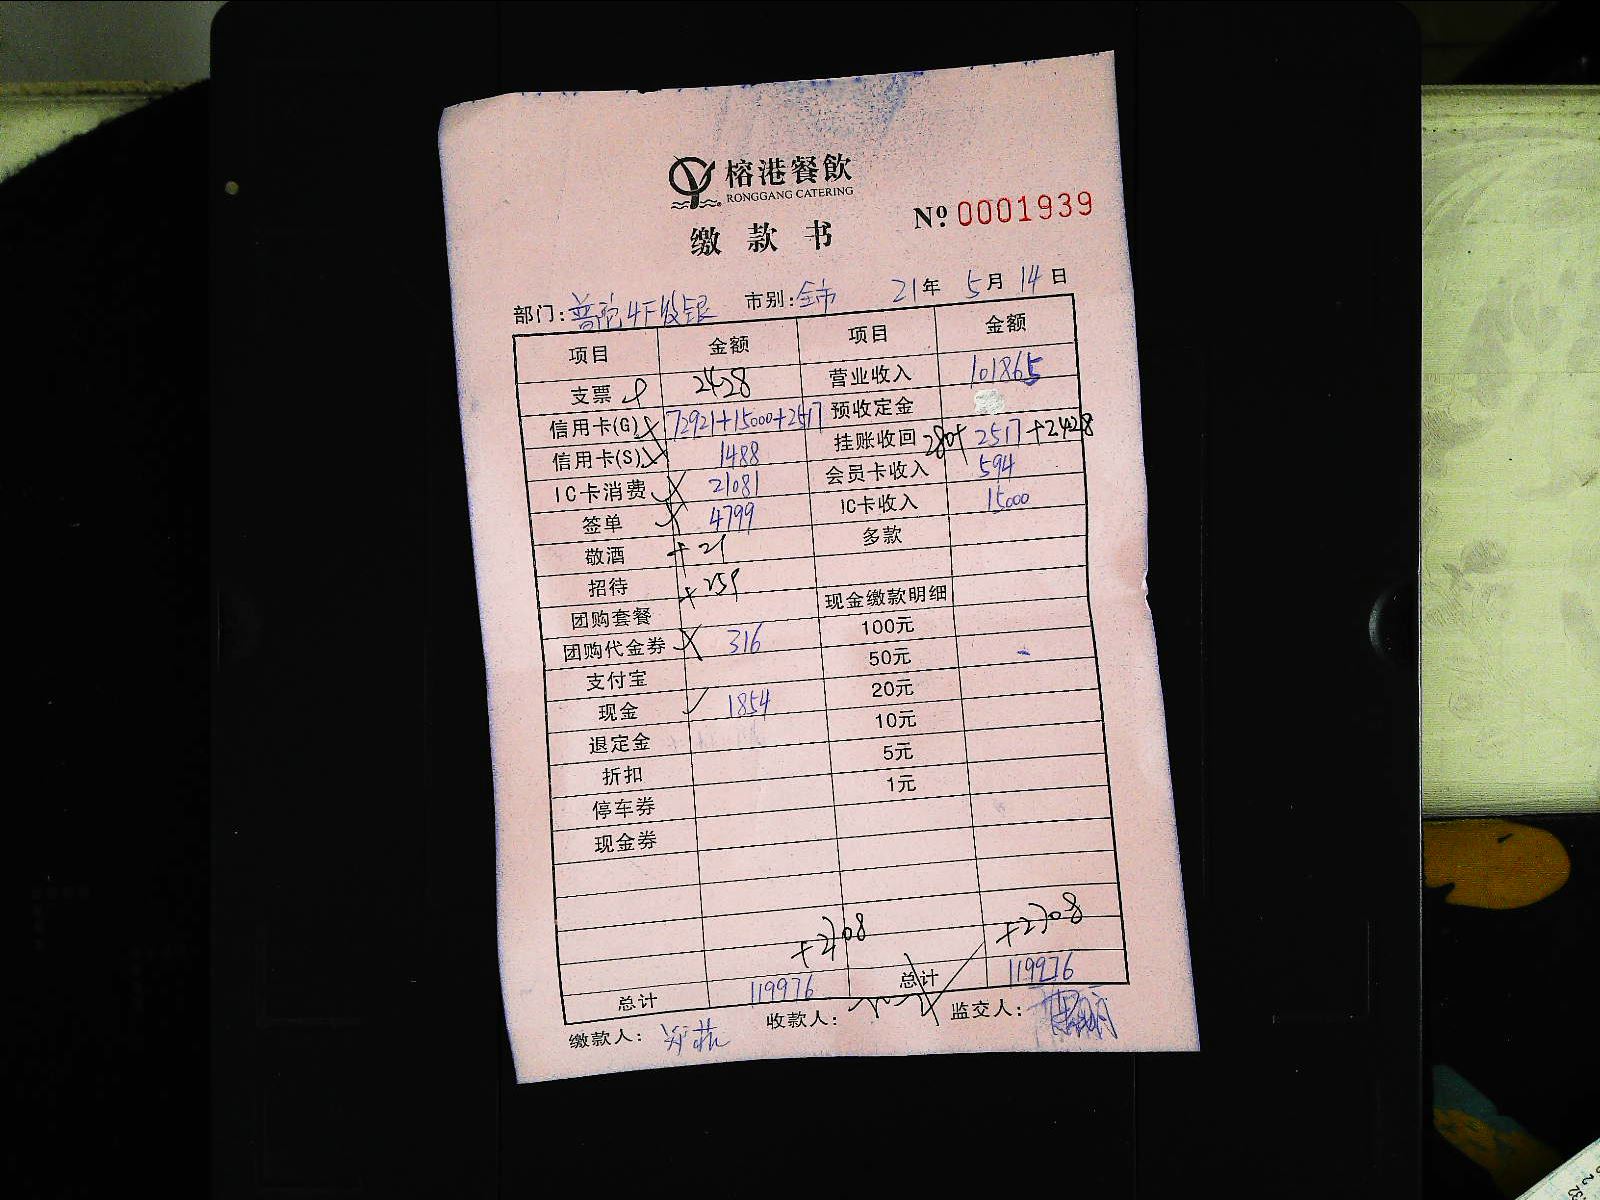 榕港餐飲
RONGGANG CATERING
缴款书
№ 0001939
部门: 普陀4F收银 市别: 全市 21年 5月 14日
项目 金额 项目 金额
支票 2428 营业收入 101865
信用卡(G) 72921+15000+2517 预收定金
信用卡(S) 1488 挂账收回 280+2517+2428
IC卡消费 21081 会员卡收入 594
签单 4799 IC卡收入 15000
敬酒 +21 多款
招待 +259
团购套餐 现金缴款明细
团购代金券 316 100元
支付宝 50元
现金 1854 20元
退定金 10元
折扣 5元
停车券 1元
现金券
+2708 +2708
总计 119976 总计 119976
缴款人: 收款人: 监交人: